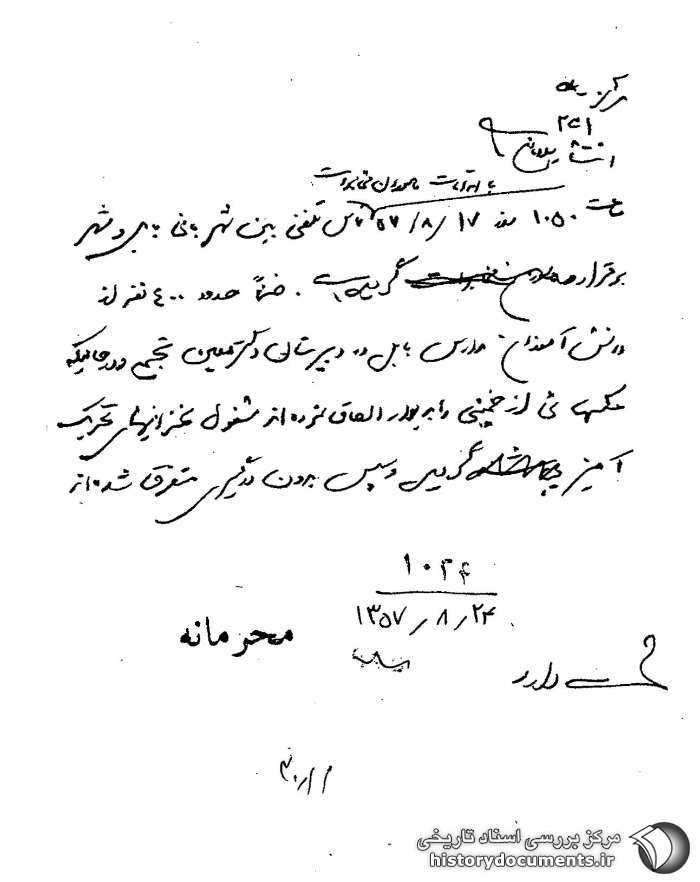 مرکز
۲۵۱
با اقدامات مامورین مخابرات
ساعت ۱۰۵۰ روز ۱۷/۸/۵۷ تماس تلفنی بین شهربانی بابل و شهر
برقرار گردید . ضمناً حدود ۴۰۰ نفر از
دانش آموزان مدارس بابل در دبیرستان دکتر معین تجمع و در حالیکه
عکسهائی از خمینی را به دیوار الصاق نموده اند مشغول سخنرانیهای تحریک
آمیز گردید و سپس بدون درگیری متفرق شده اند
۱۰۲۴
۱۳۵۷/۸/۲۴
محرمانه
دارد
مرکز بررسی اسناد تاریخی
historydocuments.ir